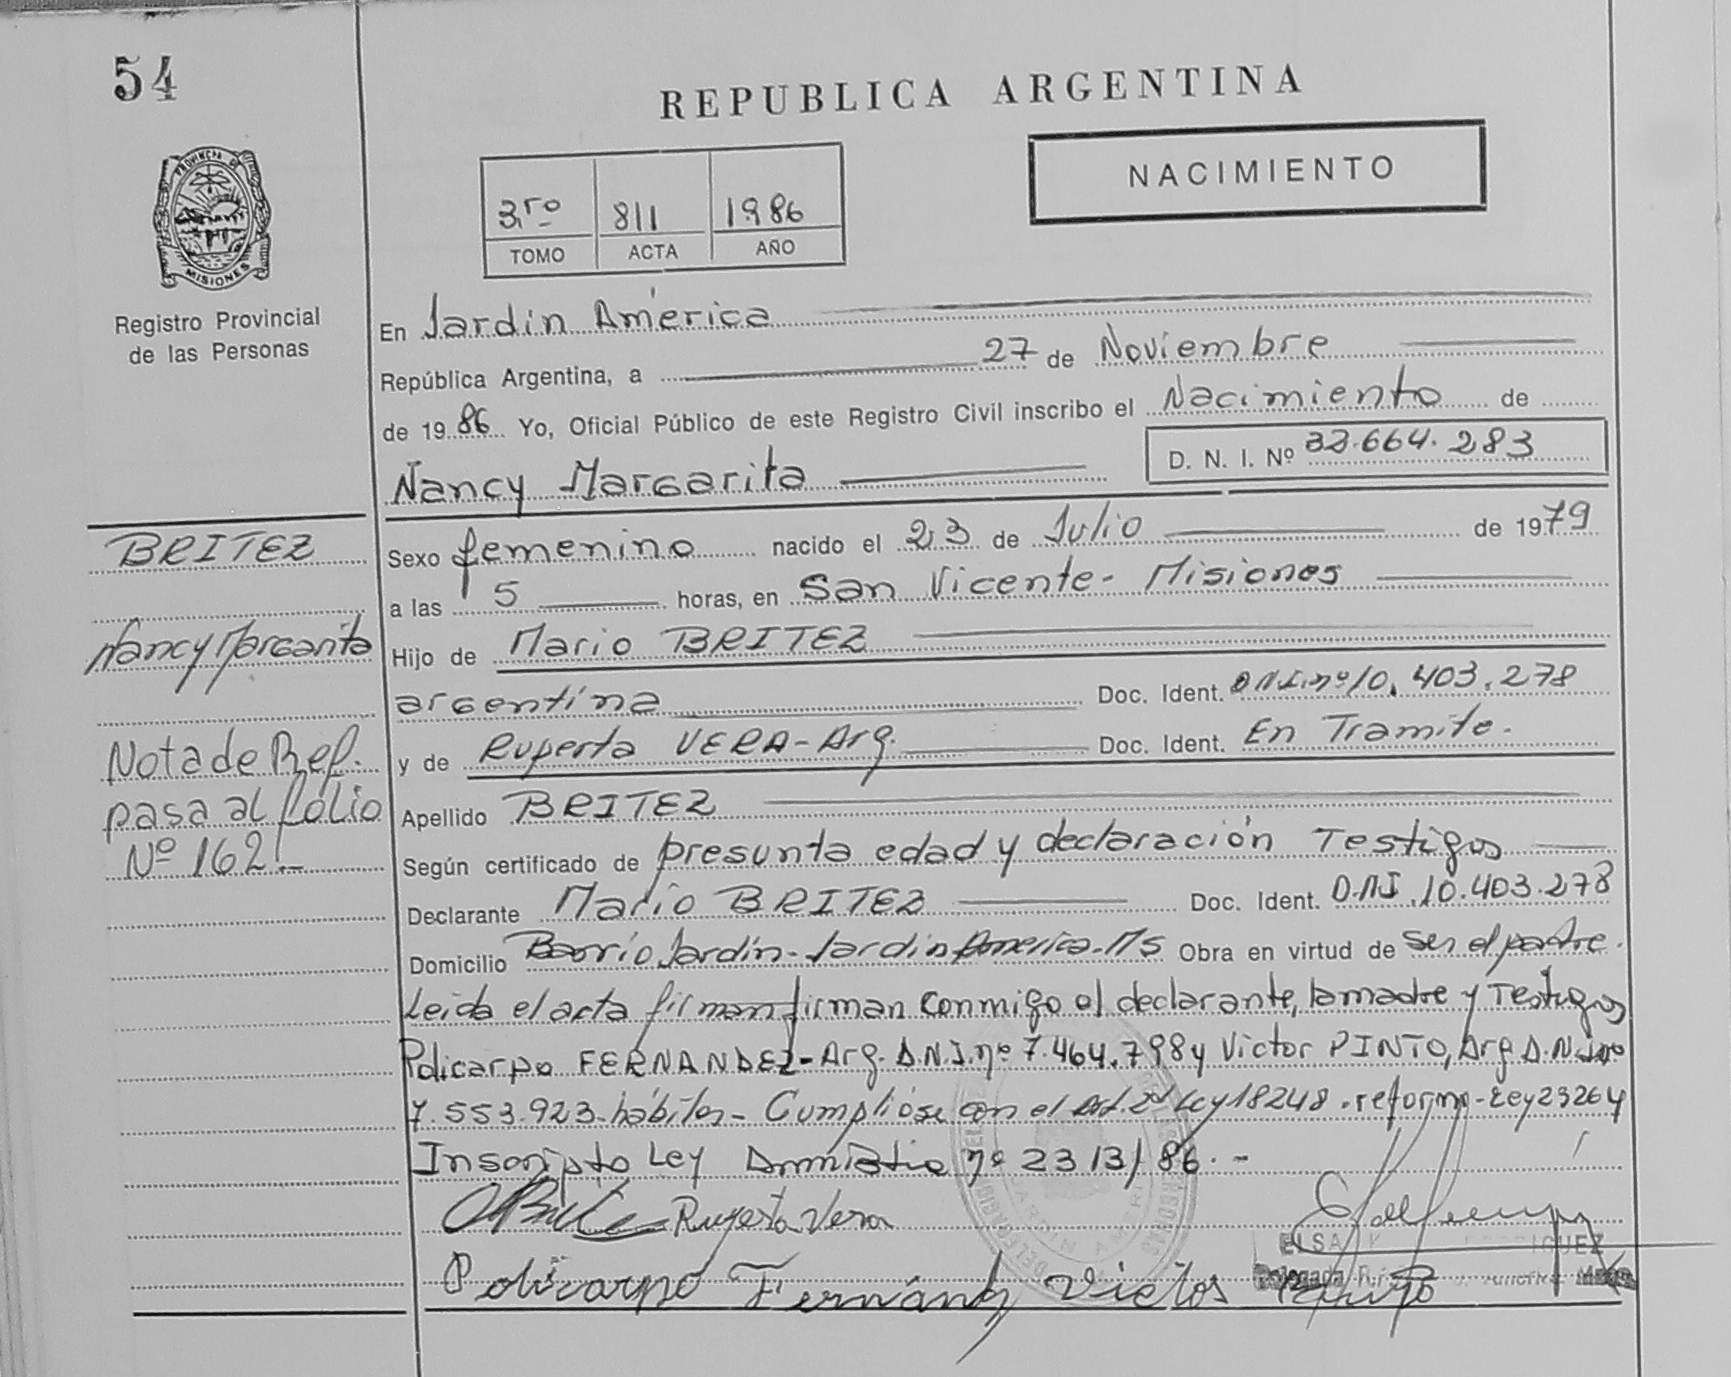 54
REPUBLICA ARGENTINA
NACIMIENTO
3ro 811 1986
TOMO ACTA AÑO
PROVINCIA DE
MISIONES
Registro Provincial
de las Personas
En Jardín América
República Argentina, a 27 de Noviembre
de 1986 Yo, Oficial Público de este Registro Civil inscribo el Nacimiento de
D. N. I. Nº 664.283
Nancy Margarita
BRITEZ
Nancy Margarita
Nota de Ref.
pasa al folio
Nº 162.-
Sexo femenino nacido el 23 de Julio de 1979
a las 5 horas, en San Vicente- Misiones
Hijo de Mario BRITEZ
argentina Doc. Ident. D.N.I. nº 10.403.278
y de Ruperta VERA-Arg. Doc. Ident. En Tramite.
Apellido BRITEZ
Según certificado de presunta edad y declaración Testigos
Declarante Mario BRITEZ Doc. Ident. D.N.I. 10.403.278
Domicilio Barrio Jardín-Jardín America-Ms Obra en virtud de ser el padre.
Leida el acta firman firman conmigo el declarante, la madre y Testigos
Policarpo FERNANDEZ-Arg. D.N.I. nº 7.464.798 y Victor PINTO, Arg D.N.I. nº
7.553.923-hábiles- Cumplióse con el Art. 2º Ley 18248.reforma-Ley 23264
Inscripto Ley Amnistia nº 2313/86.-
Ruperta Vera
Policarpo Fernández Victor Pinto
ELSA